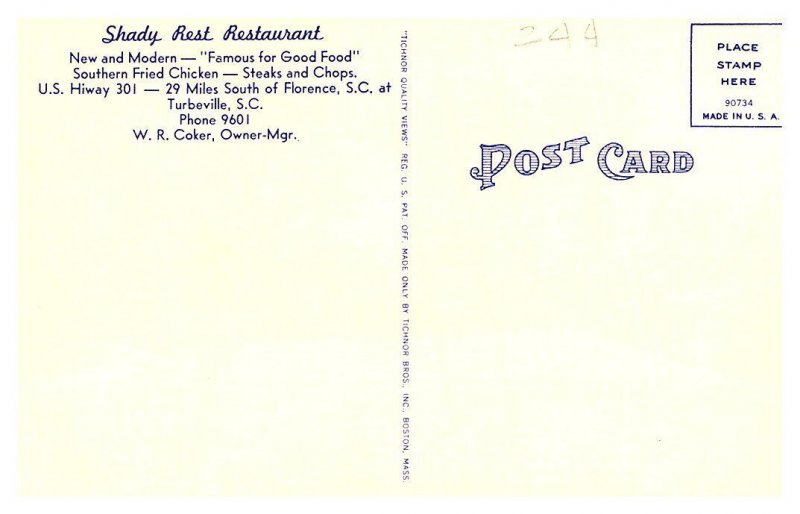 Shady Rest Restaurant
New and Modern — "Famous for Good Food"
Southern Fried Chicken — Steaks and Chops.
U.S. Hiway 301 — 29 Miles South of Florence, S.C. at
Turbeville, S.C.
Phone 9601
W. R. Coker, Owner-Mgr.
"TICHNOR QUALITY VIEWS" REG. U. S. PAT. OFF. MADE ONLY BY TICHNOR BROS., INC., BOSTON, MASS.
244
POST CARD
PLACE
STAMP
HERE
90734
MADE IN U. S. A.